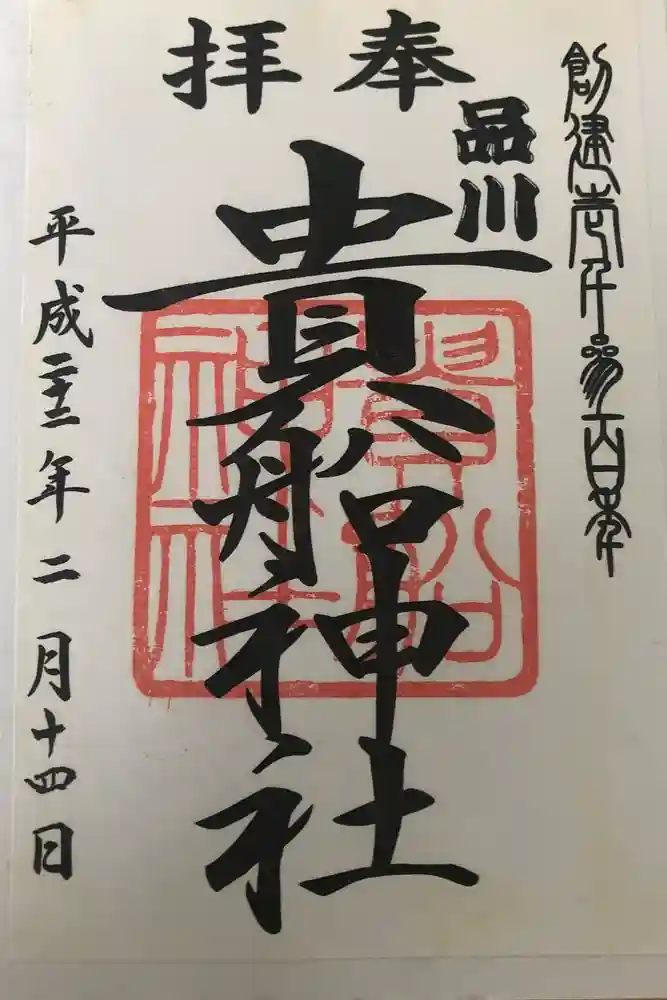 創建壱千参百年
奉拝
品川
貴船神社
貴船
神社
平成二十二年二月十四日